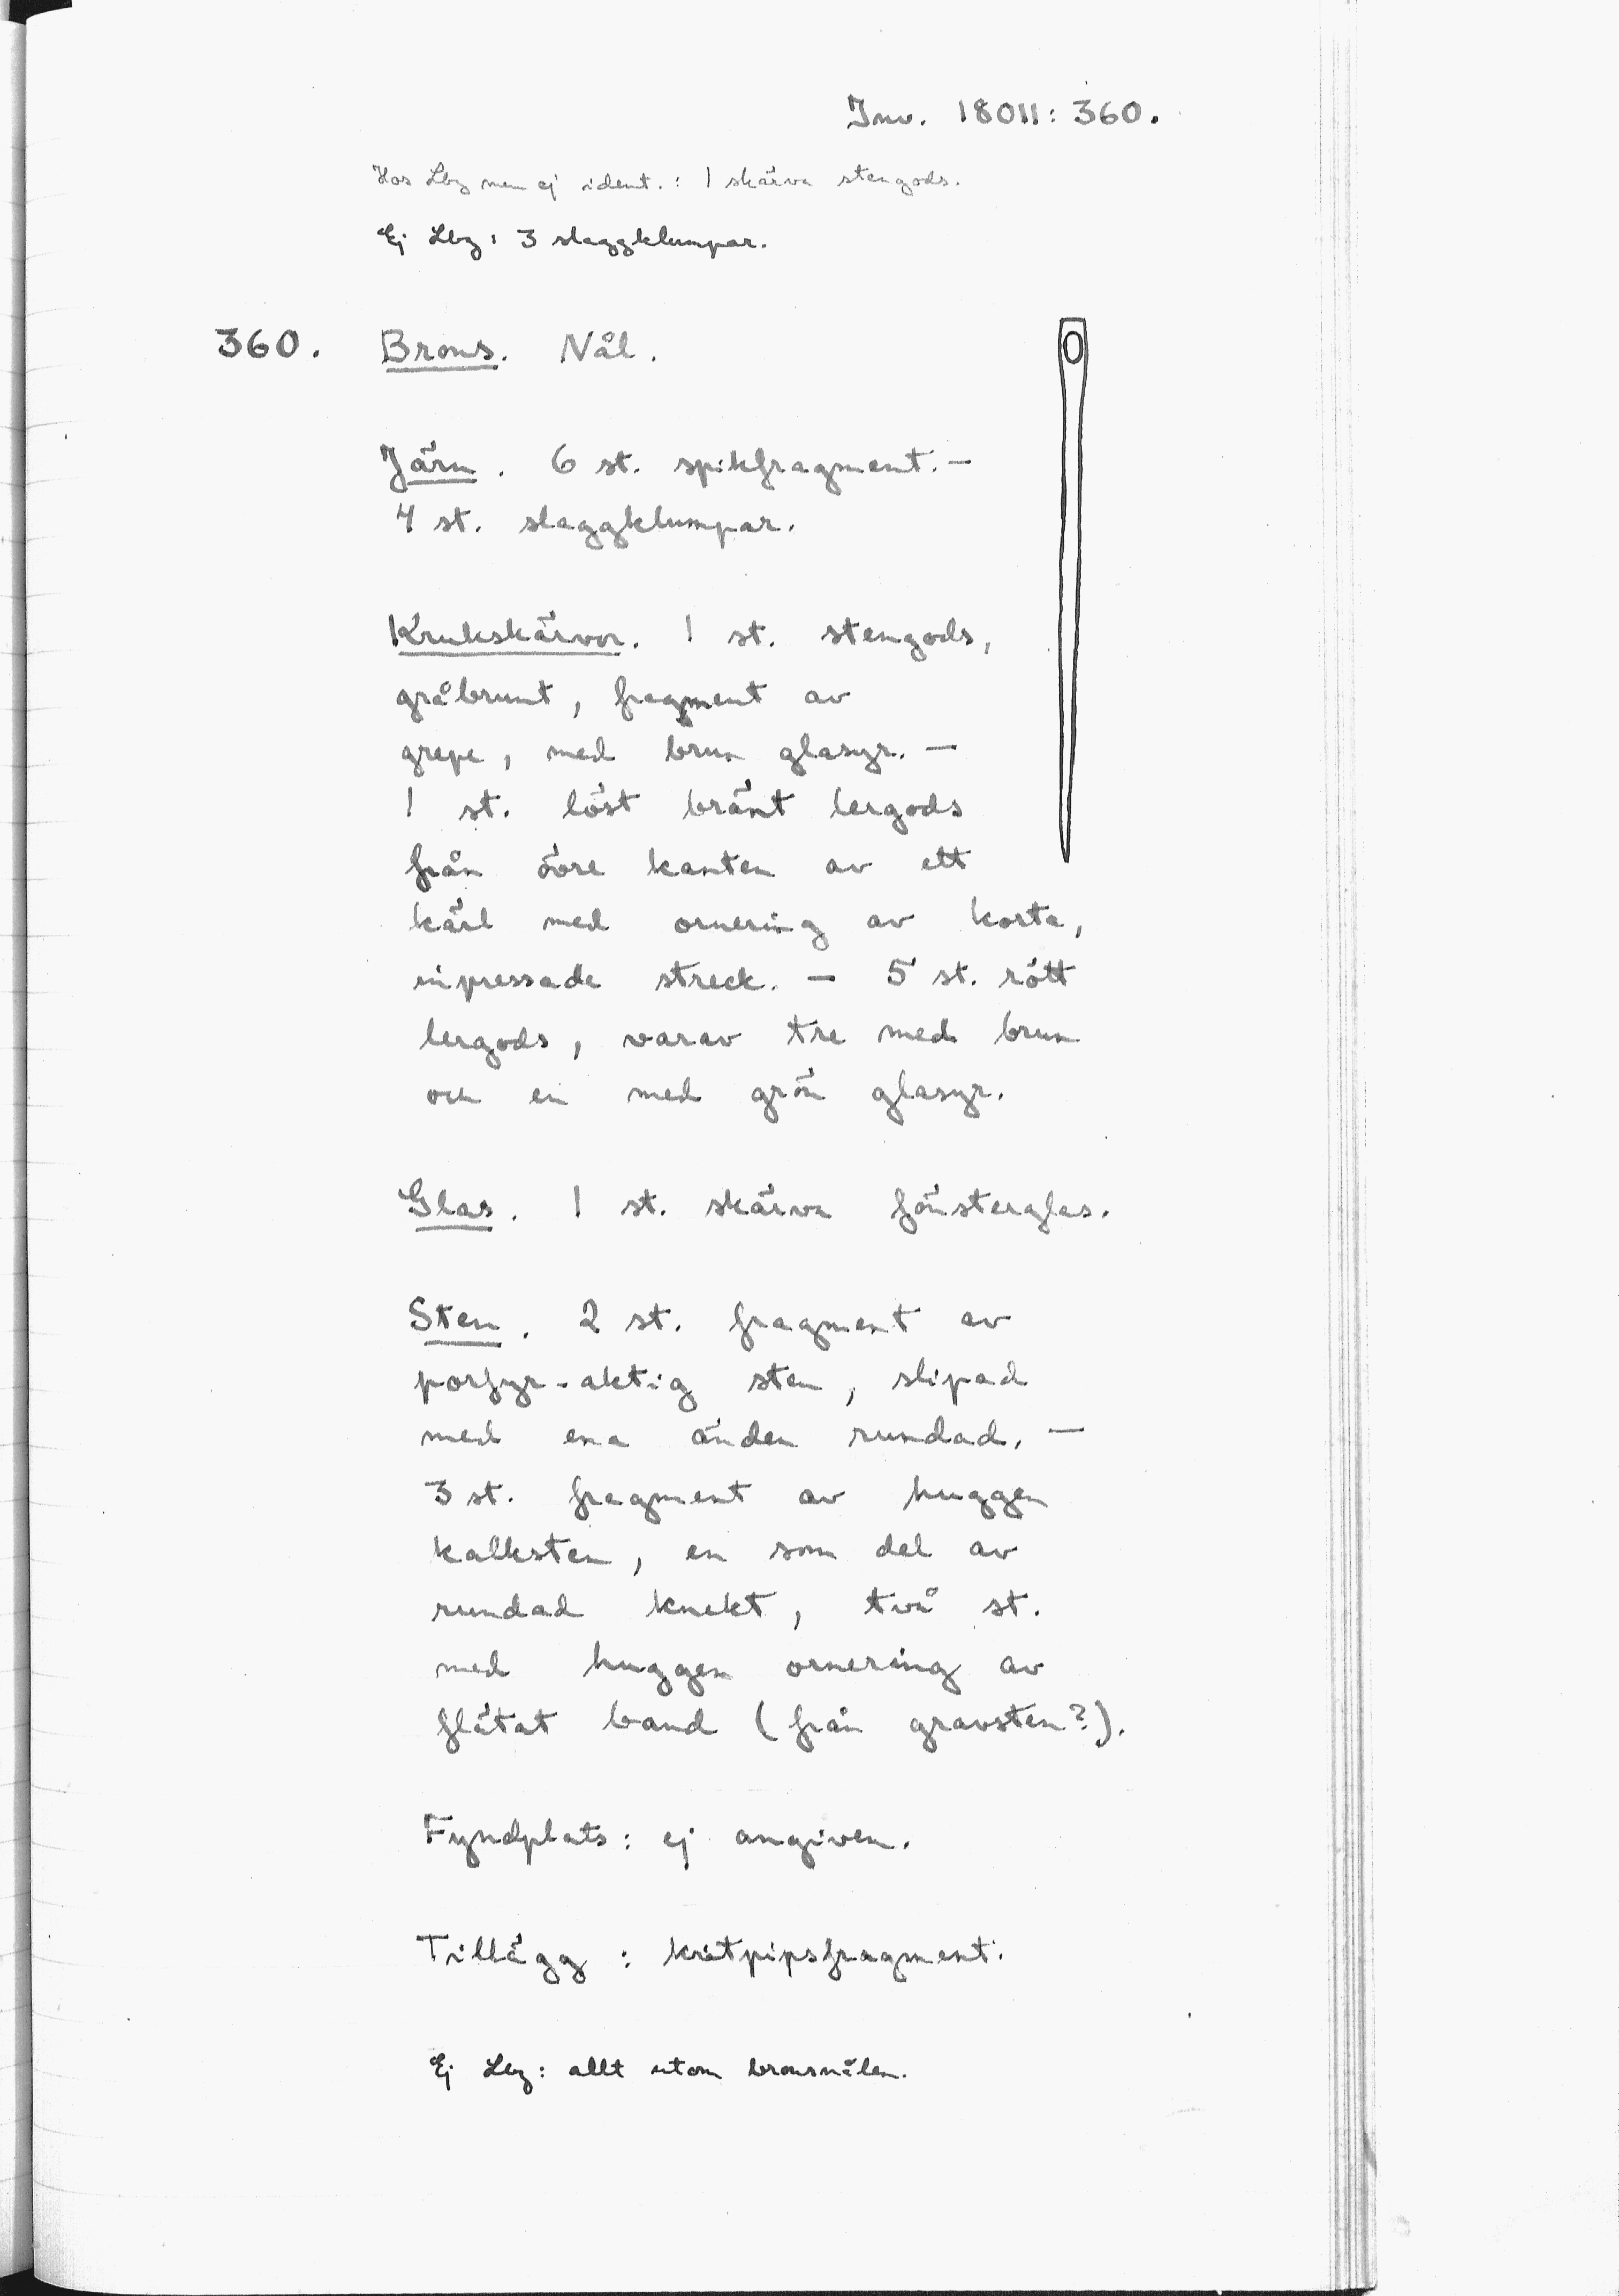 Inv. 18011: 360.
Hos Lbg men ej ident.: 1 skärva stengods.
Ej Lbg: 3 slaggklumpar.
360. Brons. Nål.
Järn. 6 st. spikfragment. —
4 st. slaggklumpar.
Krukskärvor. 1 st. stengods,
gråbrunt, fragment av
grepe, med brun glasyr. —
1 st. löst bränt lergods
från övre kanten av ett
kärl med ornering av korta,
inpressade streck. — 5 st. rött
lergods, varav tre med brun
och en med grön glasyr.
Glas. 1 st. skärva fönsterglas.
Sten. 2 st. fragment av
porfyr-aktig sten, slipad
med ena änden rundad. —
3 st. fragment av huggen
kalksten, en som del av
rundad knekt, två st.
med huggen ornering av
flätat band (från gravsten?).
Fyndplats: ej angiven.
Tillägg: kritpipsfragment.
Ej Lbg: allt utom bronsnålen.